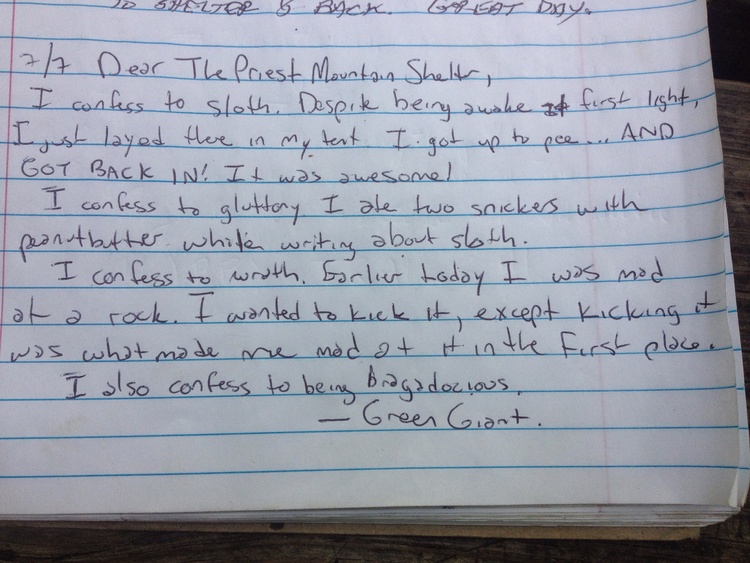 TO SHELTER & BACK. GREAT DAY.
7/7 Dear The Priest Mountain Shelter,
I confess to sloth. Despite being awake at first light,
I just layed there in my tent. I got up to pee... AND
GOT BACK IN! It was awesome!
I confess to gluttony I ate two snickers with
peanutbutter while writing about sloth.
I confess to wrath. Earlier today I was mad
at a rock. I wanted to kick it, except kicking it
was what made me mad at it in the first place.
I also confess to being bragadocious.
— Green Giant.